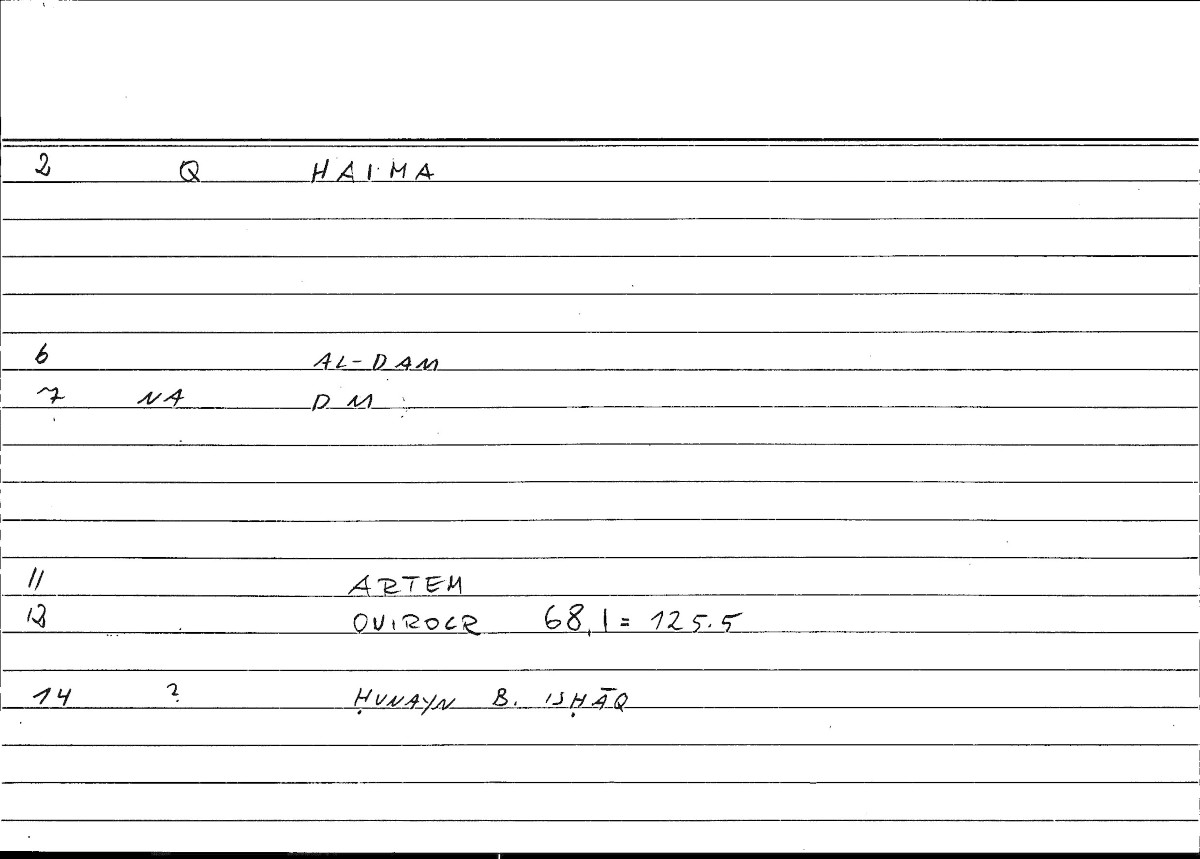 2 Q HAIMA
6 AL-DAM
7 NA DM
11 ARTEM
12 OVIROCR 68,1 = 125.5
14 ? ḤUNAYN B. ISḤĀQ